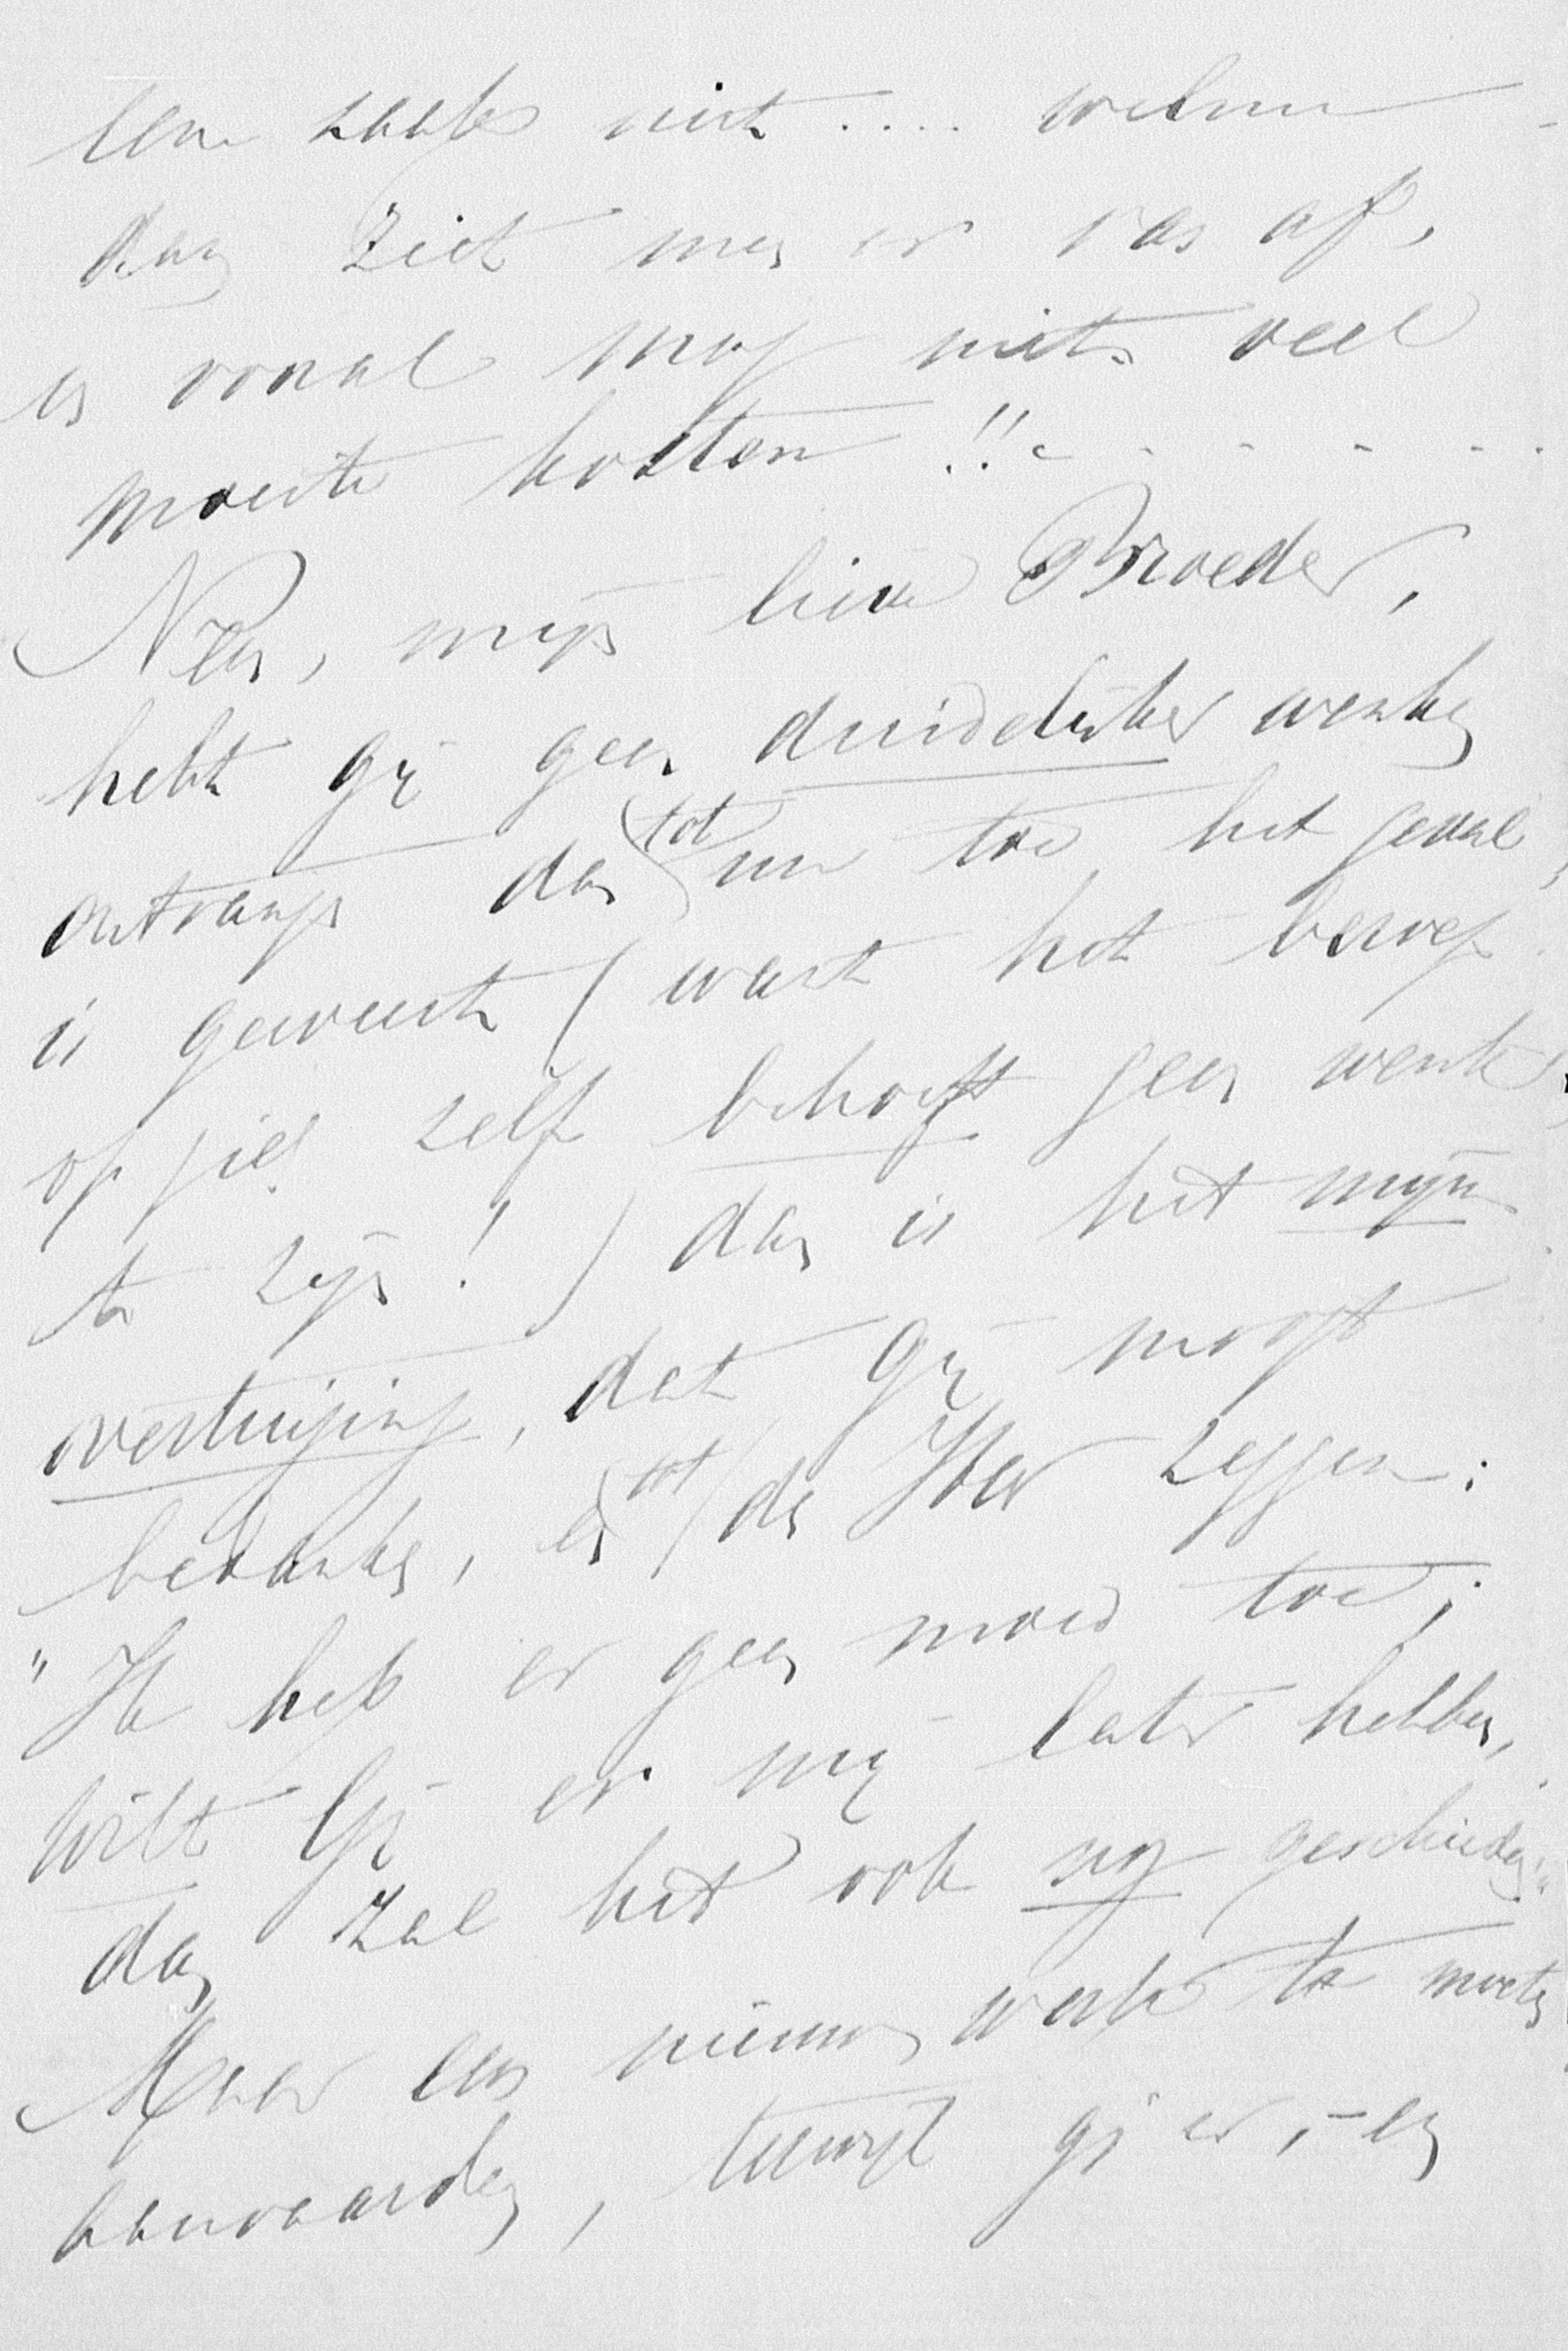 zaak niet .... welnu
dan ziet men er van af,
es vooral mag niets veel
moeite kosten!! - - - - -
Neen, mijn lieve Broeder,
hebt gij geen duidelijker wenken
ontvangen dan tot nu toe het geval
is geweest (want het beroep
op zich zelf behoeft geen wenk
te zijn!) dan is het mijn
overtuiging, dat gij moogt
bedanken, en tot den Heer zeggen:
"Ik heb er geen moed toe;
wilt Gij er mij later hebben,
dan zal het ook nog geschieden".
Maar een nieuw werk te moeten
aanvaarden, terwijl gij er, - en